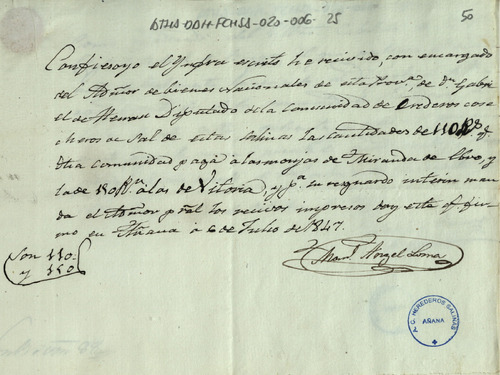 ATHA-DAH-FCHSA-020-006-25
50
Confieso yo el Ynfra escrito he recivido, con encargado
del Admor de bienes Nacionales de esta Prova, de Dn Gabri
el de Diputado de la Comunidad de Erederos cose
cheros de Sal de estas Salinas las cantidades de 110 Rs q
dha comunidad paga a las monjas de Miranda de Ebro, y
la de 150 Rs a las de Vitoria, y pa. su resguardo interin man
da el Admor pral los recivos impresos doy este q fir
mo en Añana a 6 de Julio de 1847.
Son 110-
y 150
Manl Angel Loma
A.C. HEREDEROS SALINAS
AÑANA